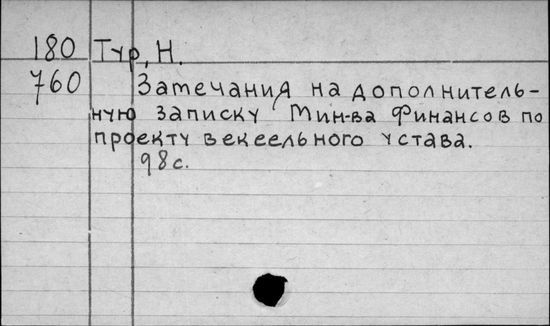 180 Тур, Н.
760 Замечания на дополнитель-
ную записку Мин-ва Финансов по
проекту векселього устава.
98 с.